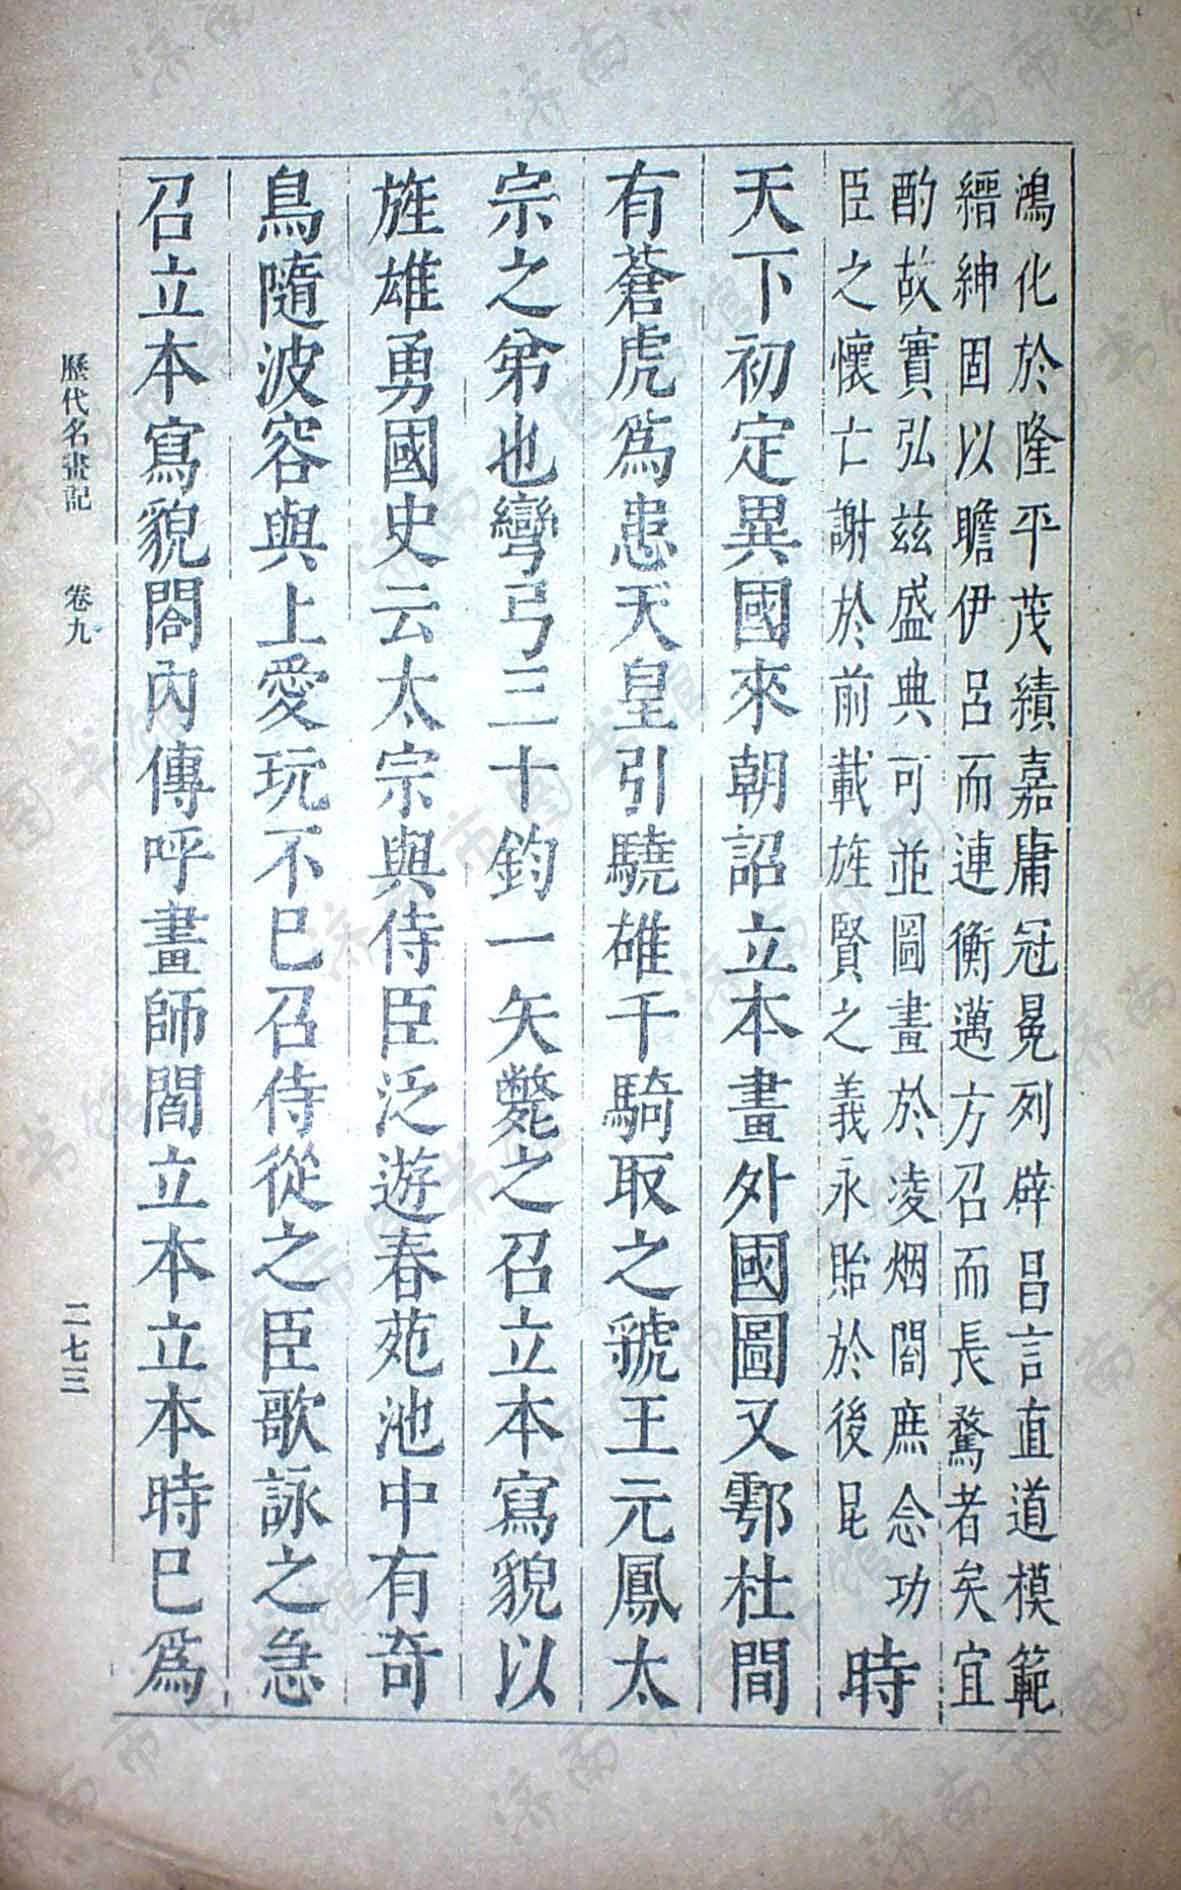 鴻化於隆平茂績嘉庸冠冕列辟昌言直道模範
縉紳固以瞻伊呂而連衡邁方召而長騖者矣宜
酌故實弘茲盛典可並圖畫於凌烟閣庶念功
臣之懷亡謝於前載旌賢之義永貽於後昆
時
天下初定異國來朝詔立本畫外國圖又鄠杜間
有蒼虎爲患天皇引驍雄千騎取之虢王元鳳太
宗之弟也彎弓三十鈞一矢斃之召立本寫貌以
旌雄勇國史云太宗與侍臣泛遊春苑池中有奇
鳥隨波容與上愛玩不已召侍從之臣歌詠之急
召立本寫貌閤內傳呼畫師閻立本立本時已爲
歷代名畫記 卷九 二七三
濟南市图书馆